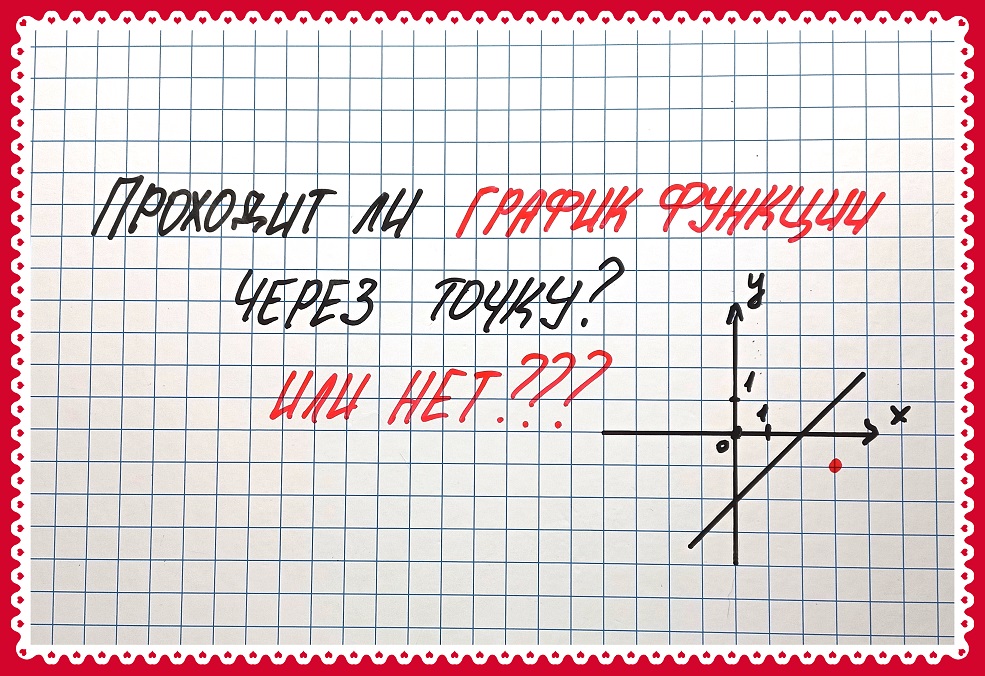 ПРОХОДИТ ЛИ ГРАФИК ФУНКЦИИ
ЧЕРЕЗ ТОЧКУ?
ИЛИ НЕТ.???
y
1
1
x
0